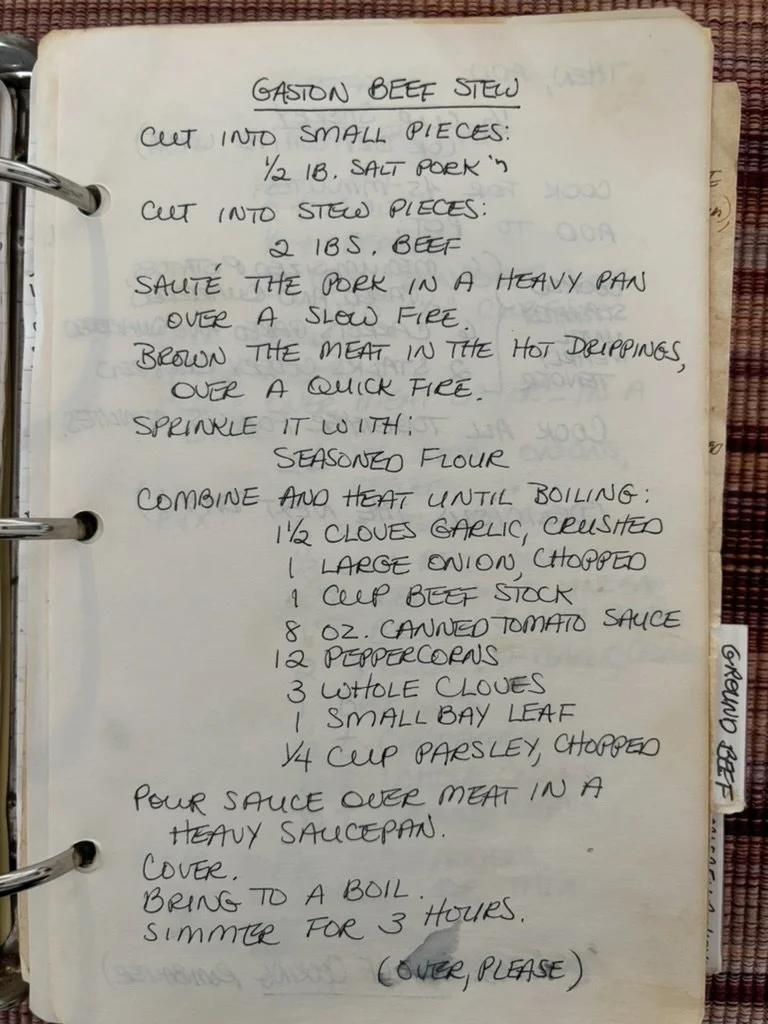 GASTON BEEF STEW
CUT INTO SMALL PIECES:
1/2 lB. SALT PORK
CUT INTO STEW PIECES:
2 lBS. BEEF
SAUTÉ THE PORK IN A HEAVY PAN
OVER A SLOW FIRE.
BROWN THE MEAT IN THE HOT DRIPPINGS,
OVER A QUICK FIRE.
SPRINKLE IT WITH:
SEASONED FLOUR
COMBINE AND HEAT UNTIL BOILING:
1 1/2 CLOVES GARLIC, CRUSHED
1 LARGE ONION, CHOPPED
1 CUP BEEF STOCK
8 OZ. CANNED TOMATO SAUCE
12 PEPPERCORNS
3 WHOLE CLOVES
1 SMALL BAY LEAF
1/4 CUP PARSLEY, CHOPPED
POUR SAUCE OVER MEAT IN A
HEAVY SAUCEPAN.
COVER.
BRING TO A BOIL.
SIMMER FOR 3 HOURS.
(OVER, PLEASE)
GROUND BEEF